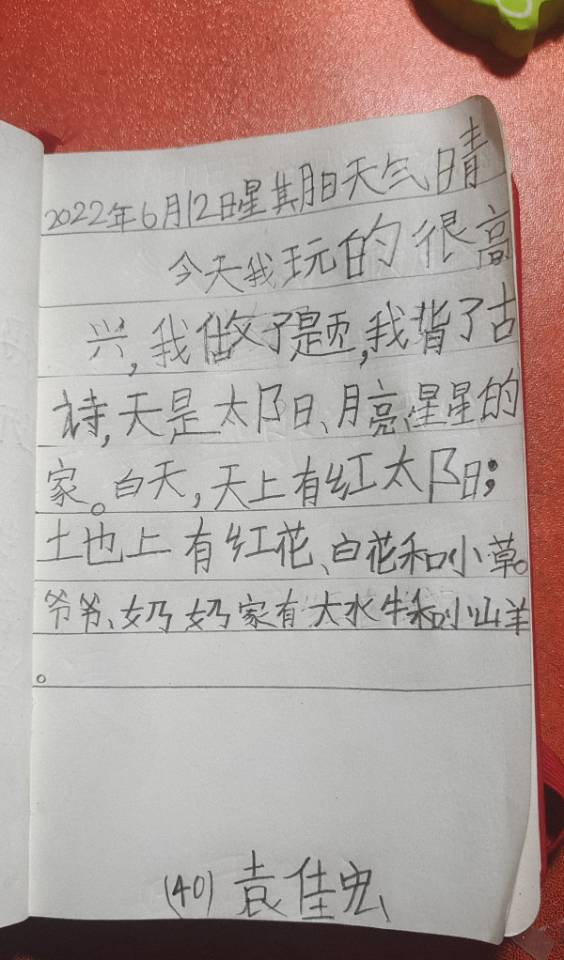 2022年6月12日星期日天气晴
今天我玩的很高
兴,我做了题,我背了古
诗,天是太阳、月亮、星星的
家。白天,天上有红太阳;
土也上有红花、白花和小草。
爷爷、奶奶家有大水牛和小山羊
。
(40) 袁佳宏